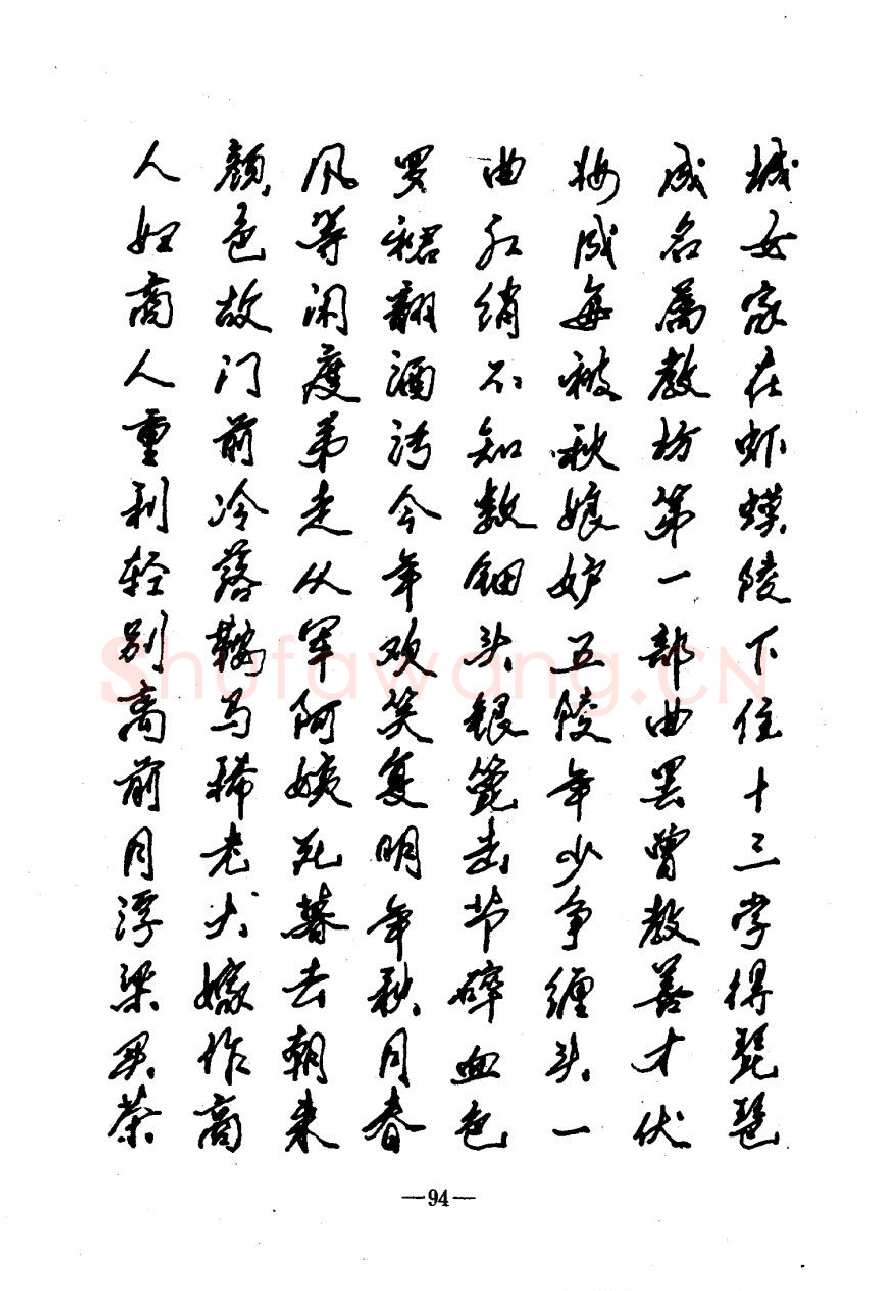 城女家在虾蟆陵下住十三学得琵琶
成名属教坊第一部曲罢曾教善才伏
妆成每被秋娘妒五陵年少争缠头一
曲红绡不知数钿头银篦击节碎血色
罗裙翻酒污今年欢笑复明年秋月春
风等闲度弟走从军阿姨死暮去朝来
颜色故门前冷落鞍马稀老大嫁作商
人妇商人重利轻别离前月浮梁买茶
—94—
Shufawang.CN